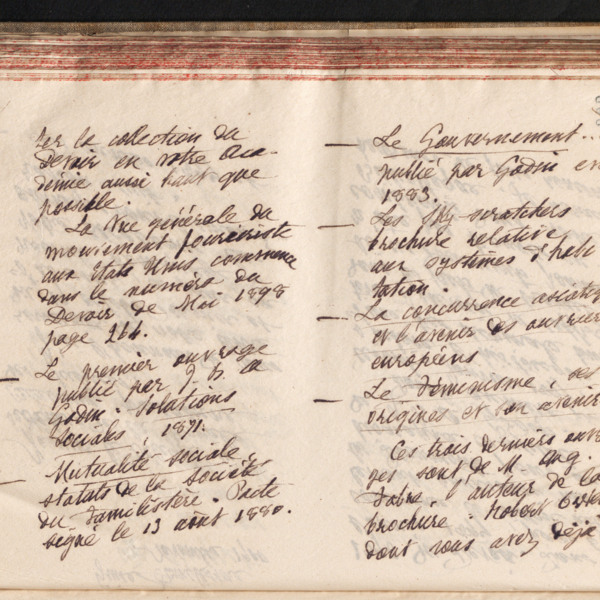 ser la collection du
Devoir en votre Aca-
démie aussi haut que
possible.
La Vue générale du
mouvement fouriériste
aux Etats Unis commence
dans le numéro du
Devoir de Mai 1898
page 264.
— Le premier ouvrage
publié par J. B. A
Godin. Solutions
Sociales, 1871.
— Mutualité sociale,
statuts de la Société
du Familistère. Pacte
signé le 13 août 1880.
— Le Gouvernement..
publié par Godin en
1883.
— Les Sky-scratchers
brochure relative
aux systèmes d'habi
tation.
— La concurrence asiatiq
et l'avenir des ouvriers
européens
— Le Féminisme, ses
origines et son avenir
Ces trois derniers ouvra
ges sont de M. Aug.
Fabre, l'auteur de la
brochure: Robert Owen
dont vous avez déjà